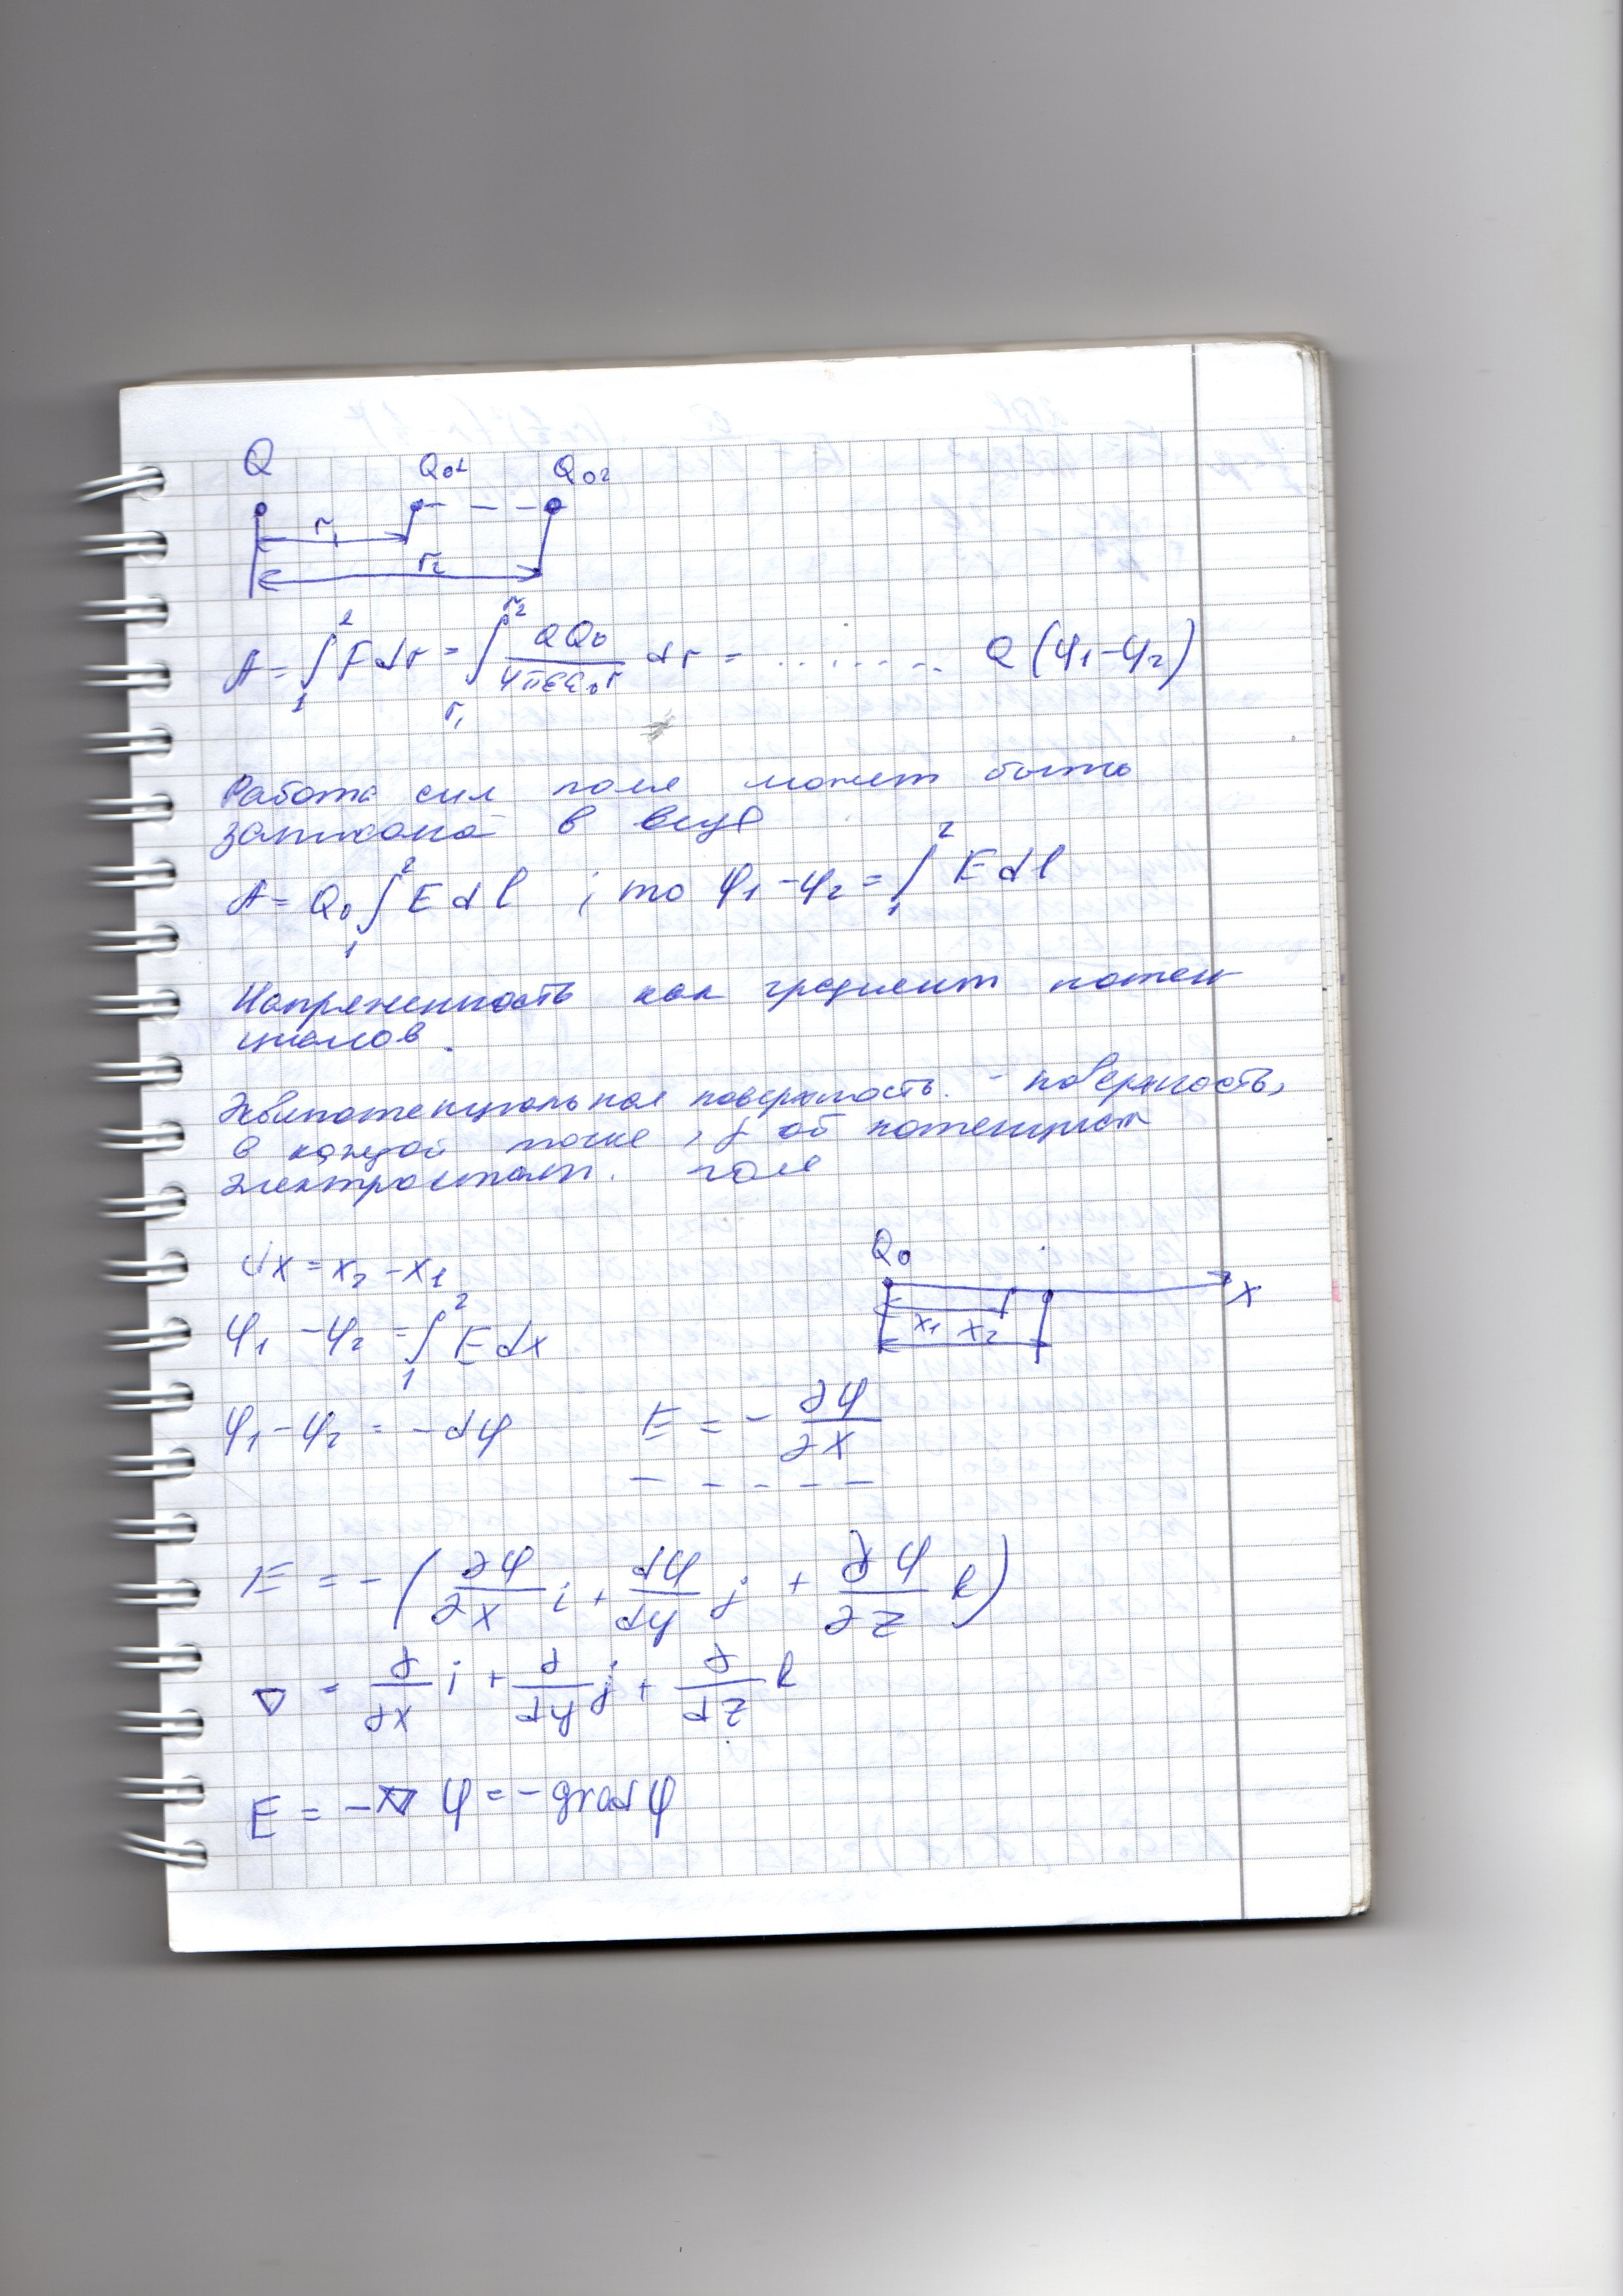 Q Q₀₁ Q₀₂
r₁
r₂
A = ∫₁² F dr = ∫_{r₁}^{r₂} QQ₀/(4πεε₀r) dr = . . . . . . . . Q(φ₁-φ₂)
Работа сил поля может быть
записана в виде
A = Q₀ ∫₁² E dl ; то φ₁-φ₂ = ∫₁² E dl
Напряженность как градиент потен
циалов.
Эквипотенциальная поверхность. - поверхность,
в каждой точке потенциал
электростат. поля
dx = x₂ - x₁
Q₀
x₁ x₂ X
φ₁ - φ₂ = ∫₁² E dx
φ₁ - φ₂ = - dφ E = - ∂φ/∂x
E = - (∂φ/∂x i + dφ/dy j + ∂φ/∂z k)
∇ = ∂/∂x i + ∂/dy j + ∂/dz k
E = -∇φ = - grad φ